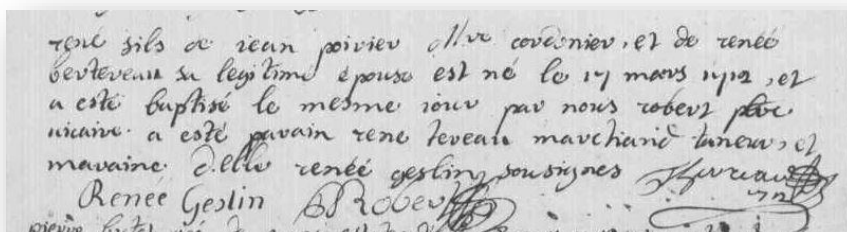 rené fils de jean poirier Mre cordonier, et de renée
berteveau sa legitime épouse est né le 17 mars 1712, et
a esté baptisé le mesme iour par nous robert
vicaire. a esté parain rene teveau marchand taneur, et
maraine delle renée geslin sousignes
Renée Geslin Robert